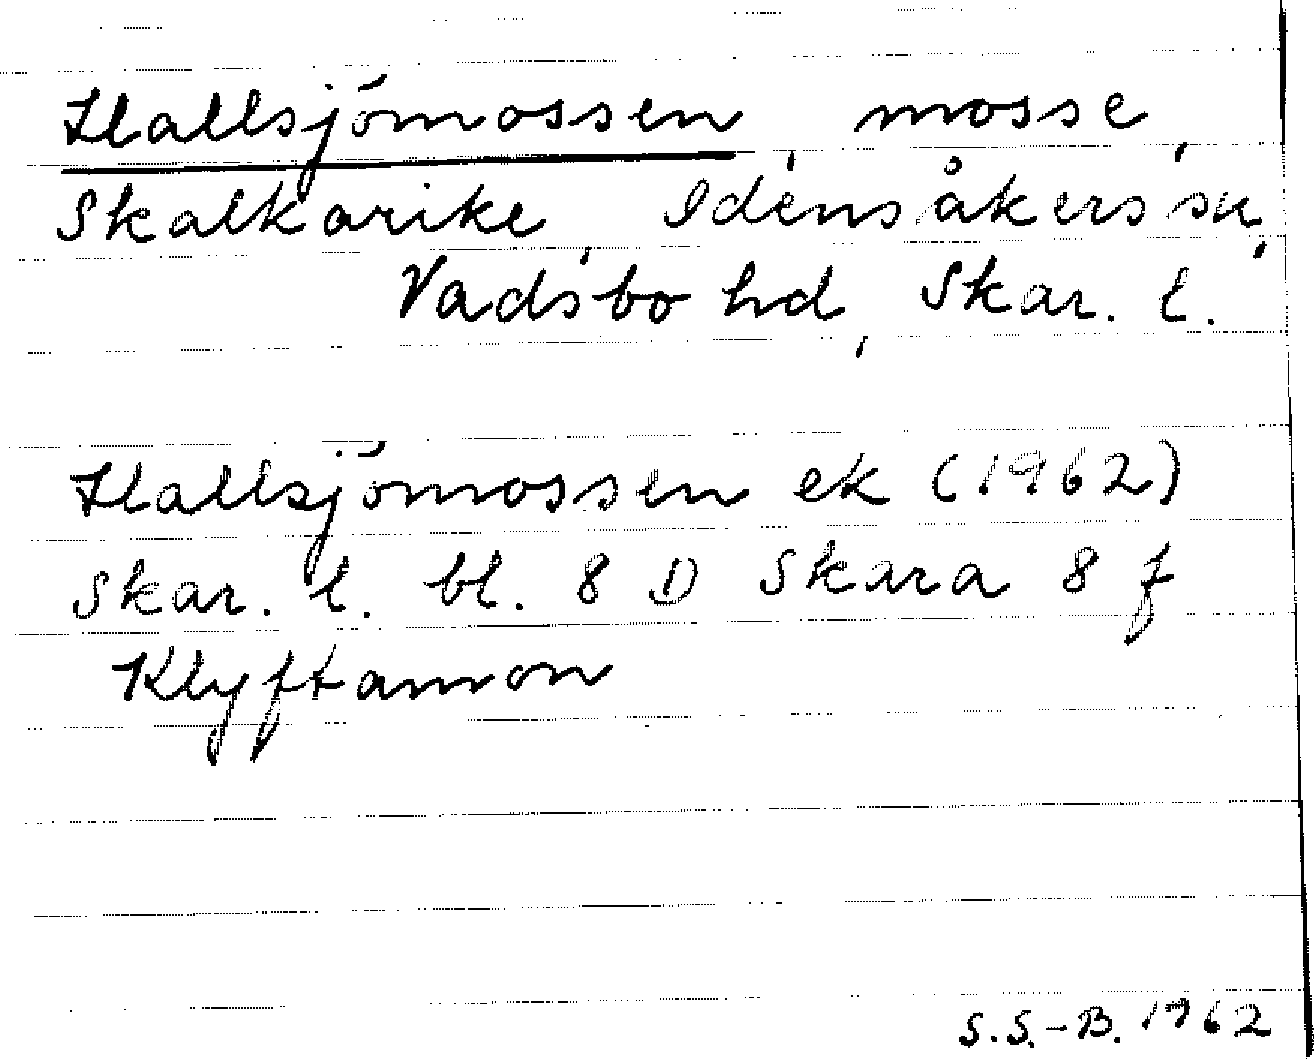 Hallsjömossen, mosse,
Skalkarike, Idensåkers sn,
Vadsbo hd, Skar. l.
Hallsjömossen ek (1962)
Skar. l. bl. 8 D Skara 8 f
Klyftamon
S.S.-B. 1962